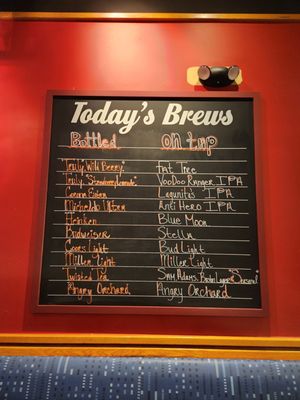 Today's Brews
Bottled
on tap
Truly Wild Berry
Truly Strawberry Lemonade
Corona
Michelob Ultra
Heineken
Budweiser
Coors Light
Miller Light
Twisted Tea
Angry Orchard
Fat Tire
VooDoo Ranger IPA
Lagunitas IPA
Anti Hero IPA
Blue Moon
Stella
Bud Light
Miller Light
Sam Adams Seasonal
Angry Orchard